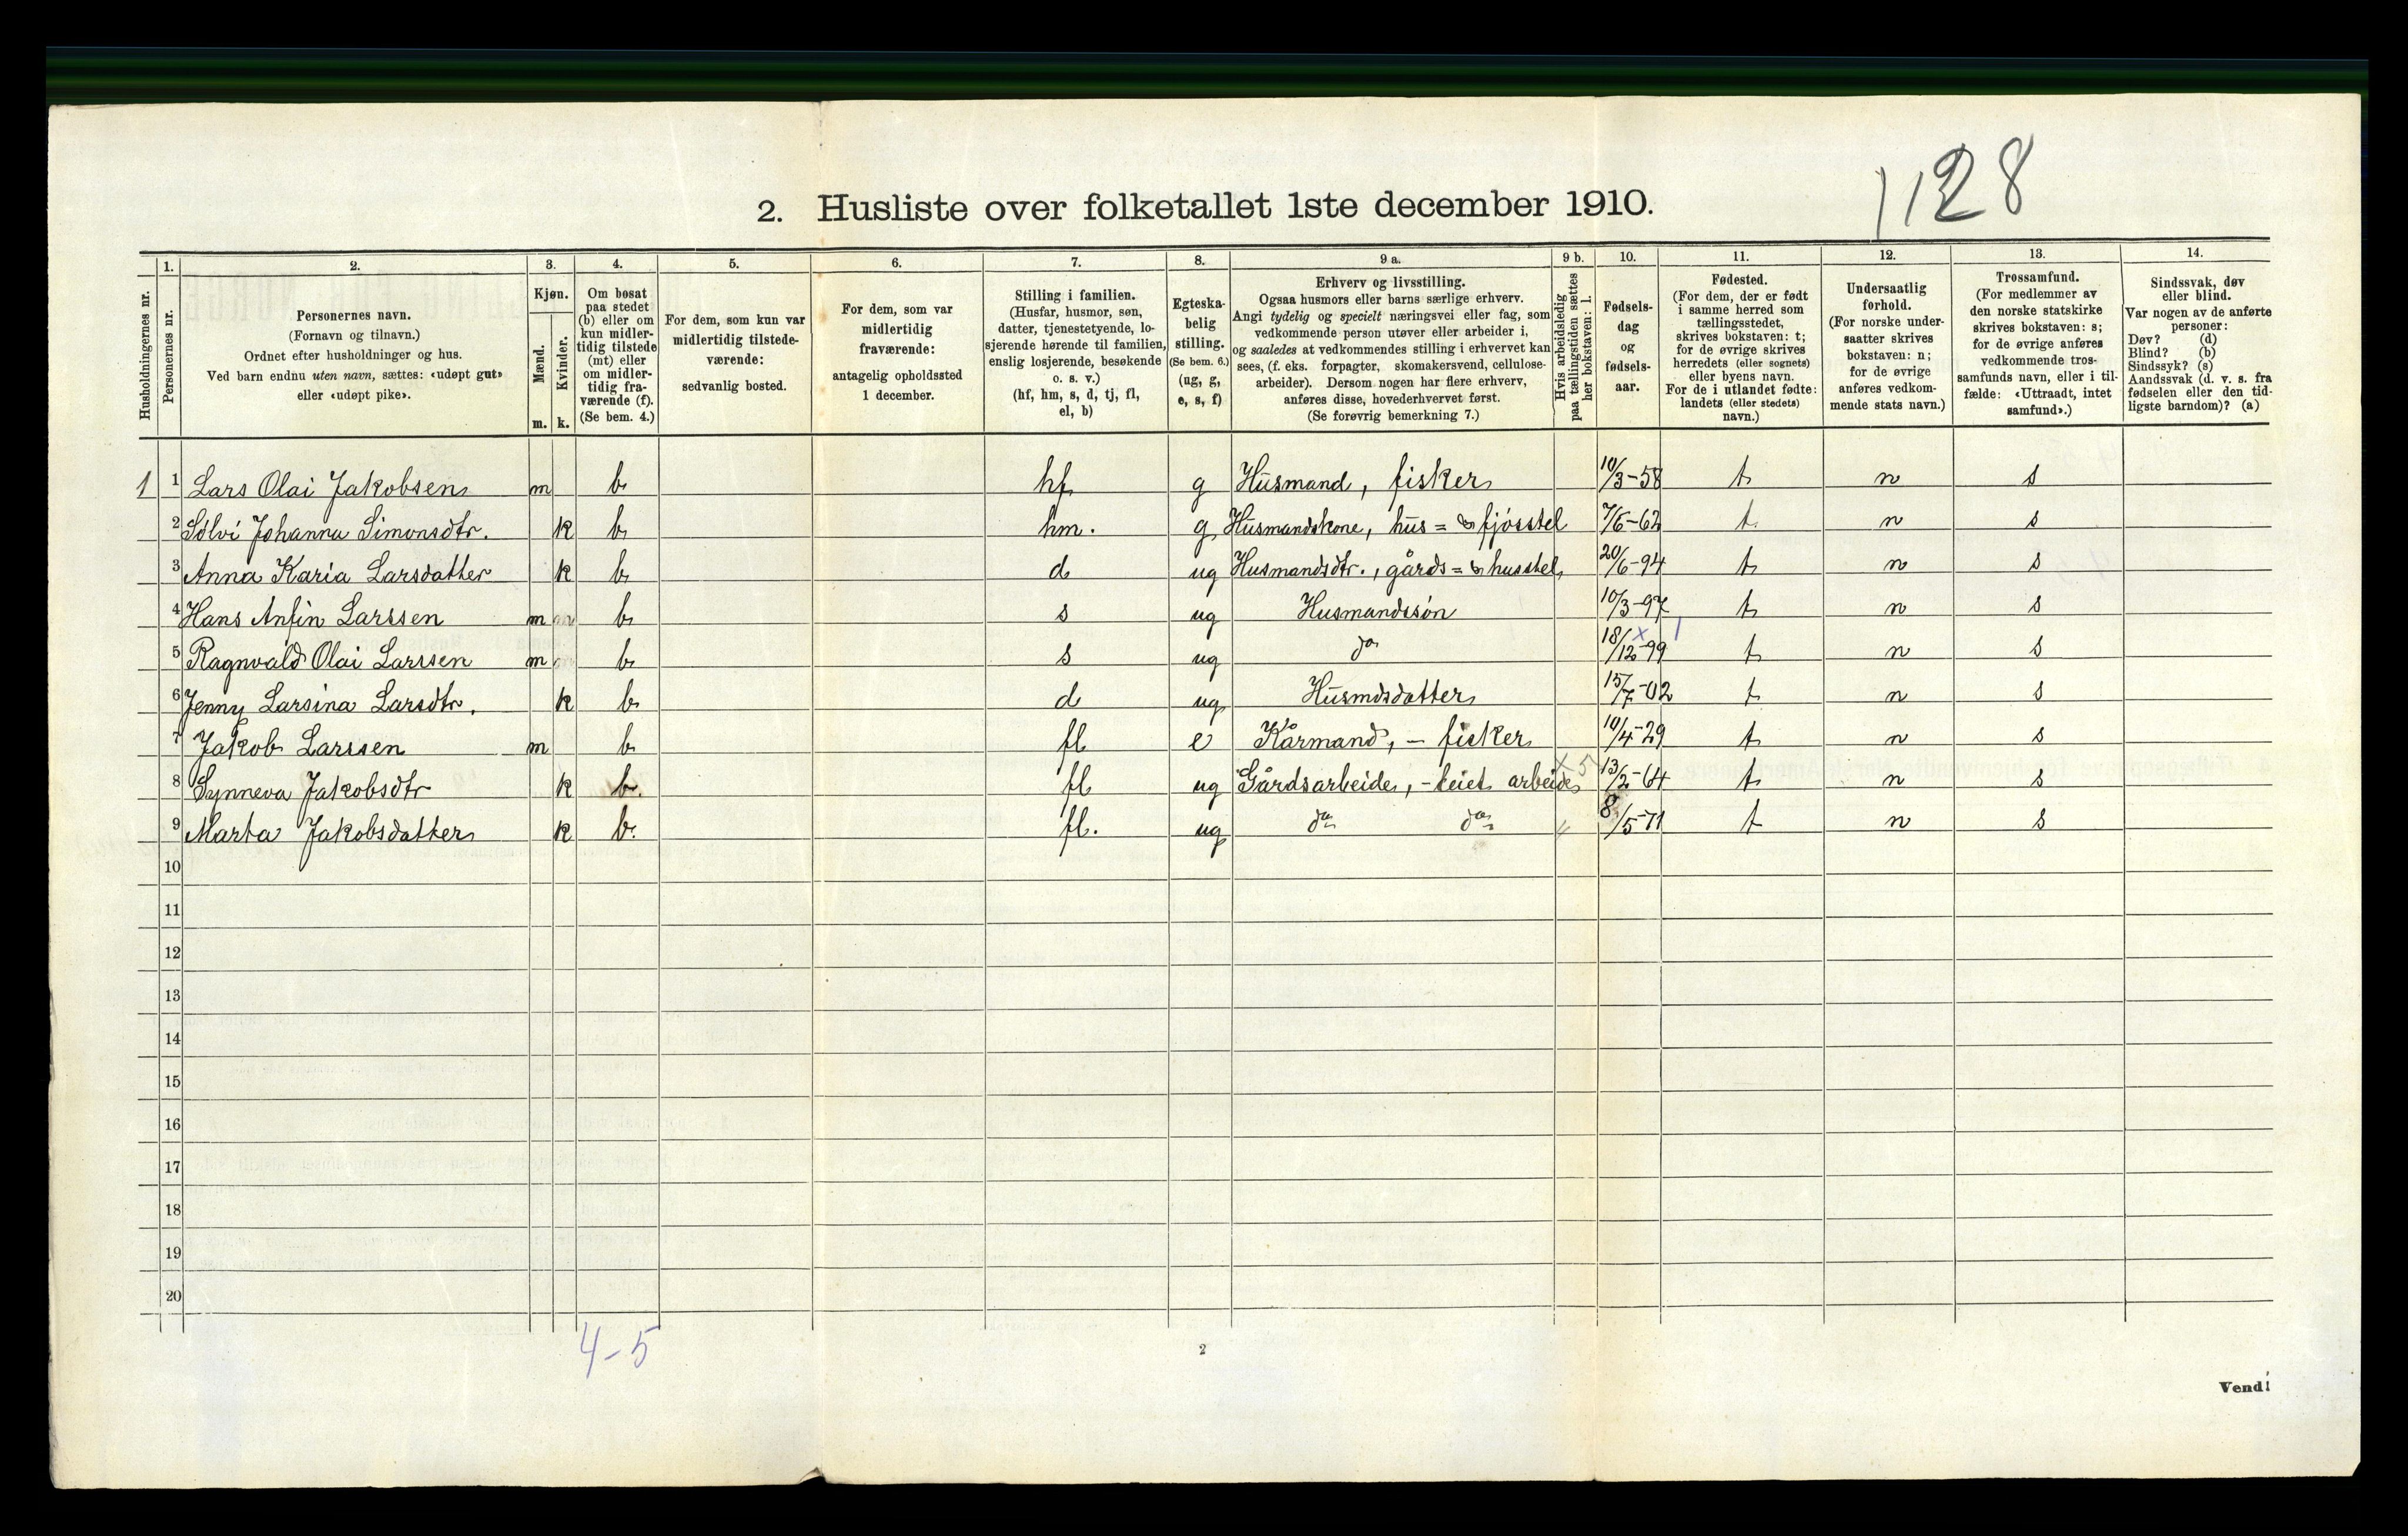 1128
2. Husliste over folketallet 1ste december 1910.
Husholdningernes nr.
1.
Personernes nr.
2.
Personernes navn.
(Fornavn og tilnavn.)
Ordnet efter husholdninger og hus.
Ved barn endnu uten navn, sættes: «udøpt gut»
eller «udøpt pike».
3.
Kjøn.
Mænd.
Kvinder.
m. k.
4.
Om bosat
paa stedet
(b) eller om
kun midler-
tidig tilstede
(mt) eller
om midler-
tidig fra-
værende (f).
(Se bem. 4.)
5.
For dem, som kun var
midlertidig tilstede-
værende:
sedvanlig bosted.
6.
For dem, som var
midlertidig
fraværende:
antagelig opholdssted
1 december.
7.
Stilling i familien.
(Husfar, husmor, søn,
datter, tjenestetyende, lo-
sjerende hørende til familien,
enslig losjerende, besøkende
o. s. v.)
(hf, hm, s, d, tj, fl,
el, b)
8.
Egteska-
belig
stilling.
(Se bem. 6.)
(ug, g,
e, s, f)
9 a.
Erhverv og livsstilling.
Ogsaa husmors eller barns særlige erhverv.
Angi tydelig og specielt næringsvei eller fag, som
vedkommende person utøver eller arbeider i,
og saaledes at vedkommendes stilling i erhvervet kan
sees, (f. eks. forpagter, skomakersvend, cellulose-
arbeider). Dersom nogen har flere erhverv,
anføres disse, hovederhvervet først.
(Se forøvrig bemerkning 7.)
9 b.
Hvis arbeidsledig
paa tællingstiden sættes
her bokstaven: l.
10.
Fødsels-
dag
og
fødsels-
aar.
11.
Fødested.
(For dem, der er født
i samme herred som
tællingsstedet,
skrives bokstaven: t;
for de øvrige skrives
herredets (eller sognets)
eller byens navn.
For de i utlandet fødte:
landets (eller stedets)
navn.)
12.
Undersaatlig
forhold.
(For norske under-
saatter skrives
bokstaven: n;
for de øvrige
anføres vedkom-
mende stats navn.)
13.
Trossamfund.
(For medlemmer av
den norske statskirke
skrives bokstaven: s;
for de øvrige anføres
vedkommende tros-
samfunds navn, eller i til-
fælde: «Uttraadt, intet
samfund».)
14.
Sindssvak, døv
eller blind.
Var nogen av de anførte
personer:
Døv? (d)
Blind? (b)
Sindssyk? (s)
Aandssvak (d. v. s. fra
fødselen eller den tid-
ligste barndom)? (a)
1 1 Lars Olai Jakobsen m b hf g Husmand, fisker 10/3-58 t n s
2 Sølvi Johanna Simonsdtr. k b hm. g Husmandskone, hus= & fjøsstel 7/6-62 t. n s
3 Anna Karia Larsdatter k b d ug Husmandsdtr., gårds= & husstel 20/6-94 t n s
4 Hans Anfin Larssen m b s ug Husmandssøn 10/3-97 t n s
5 Ragnvald Olai Larssen m b s ug do 18/12-99 t n s
6 Jenny Larsina Larsdtr. k b d ug Husmdsdatter 15/7-02 t n s
7 Jakob Larssen m b fl e Kårmand, - fisker 10/4-29 t n s
8 Synneva Jakobsdtr k b. fl ug Gårdsarbeide, - leiet arbeide x5 13/2-64 t n s
9 Marta Jakobsdatter k b. fl. ug do do 8/5-71 t n s
10
11
12
13
14
15
16
17
18
19
20
4-5
2
Vend!